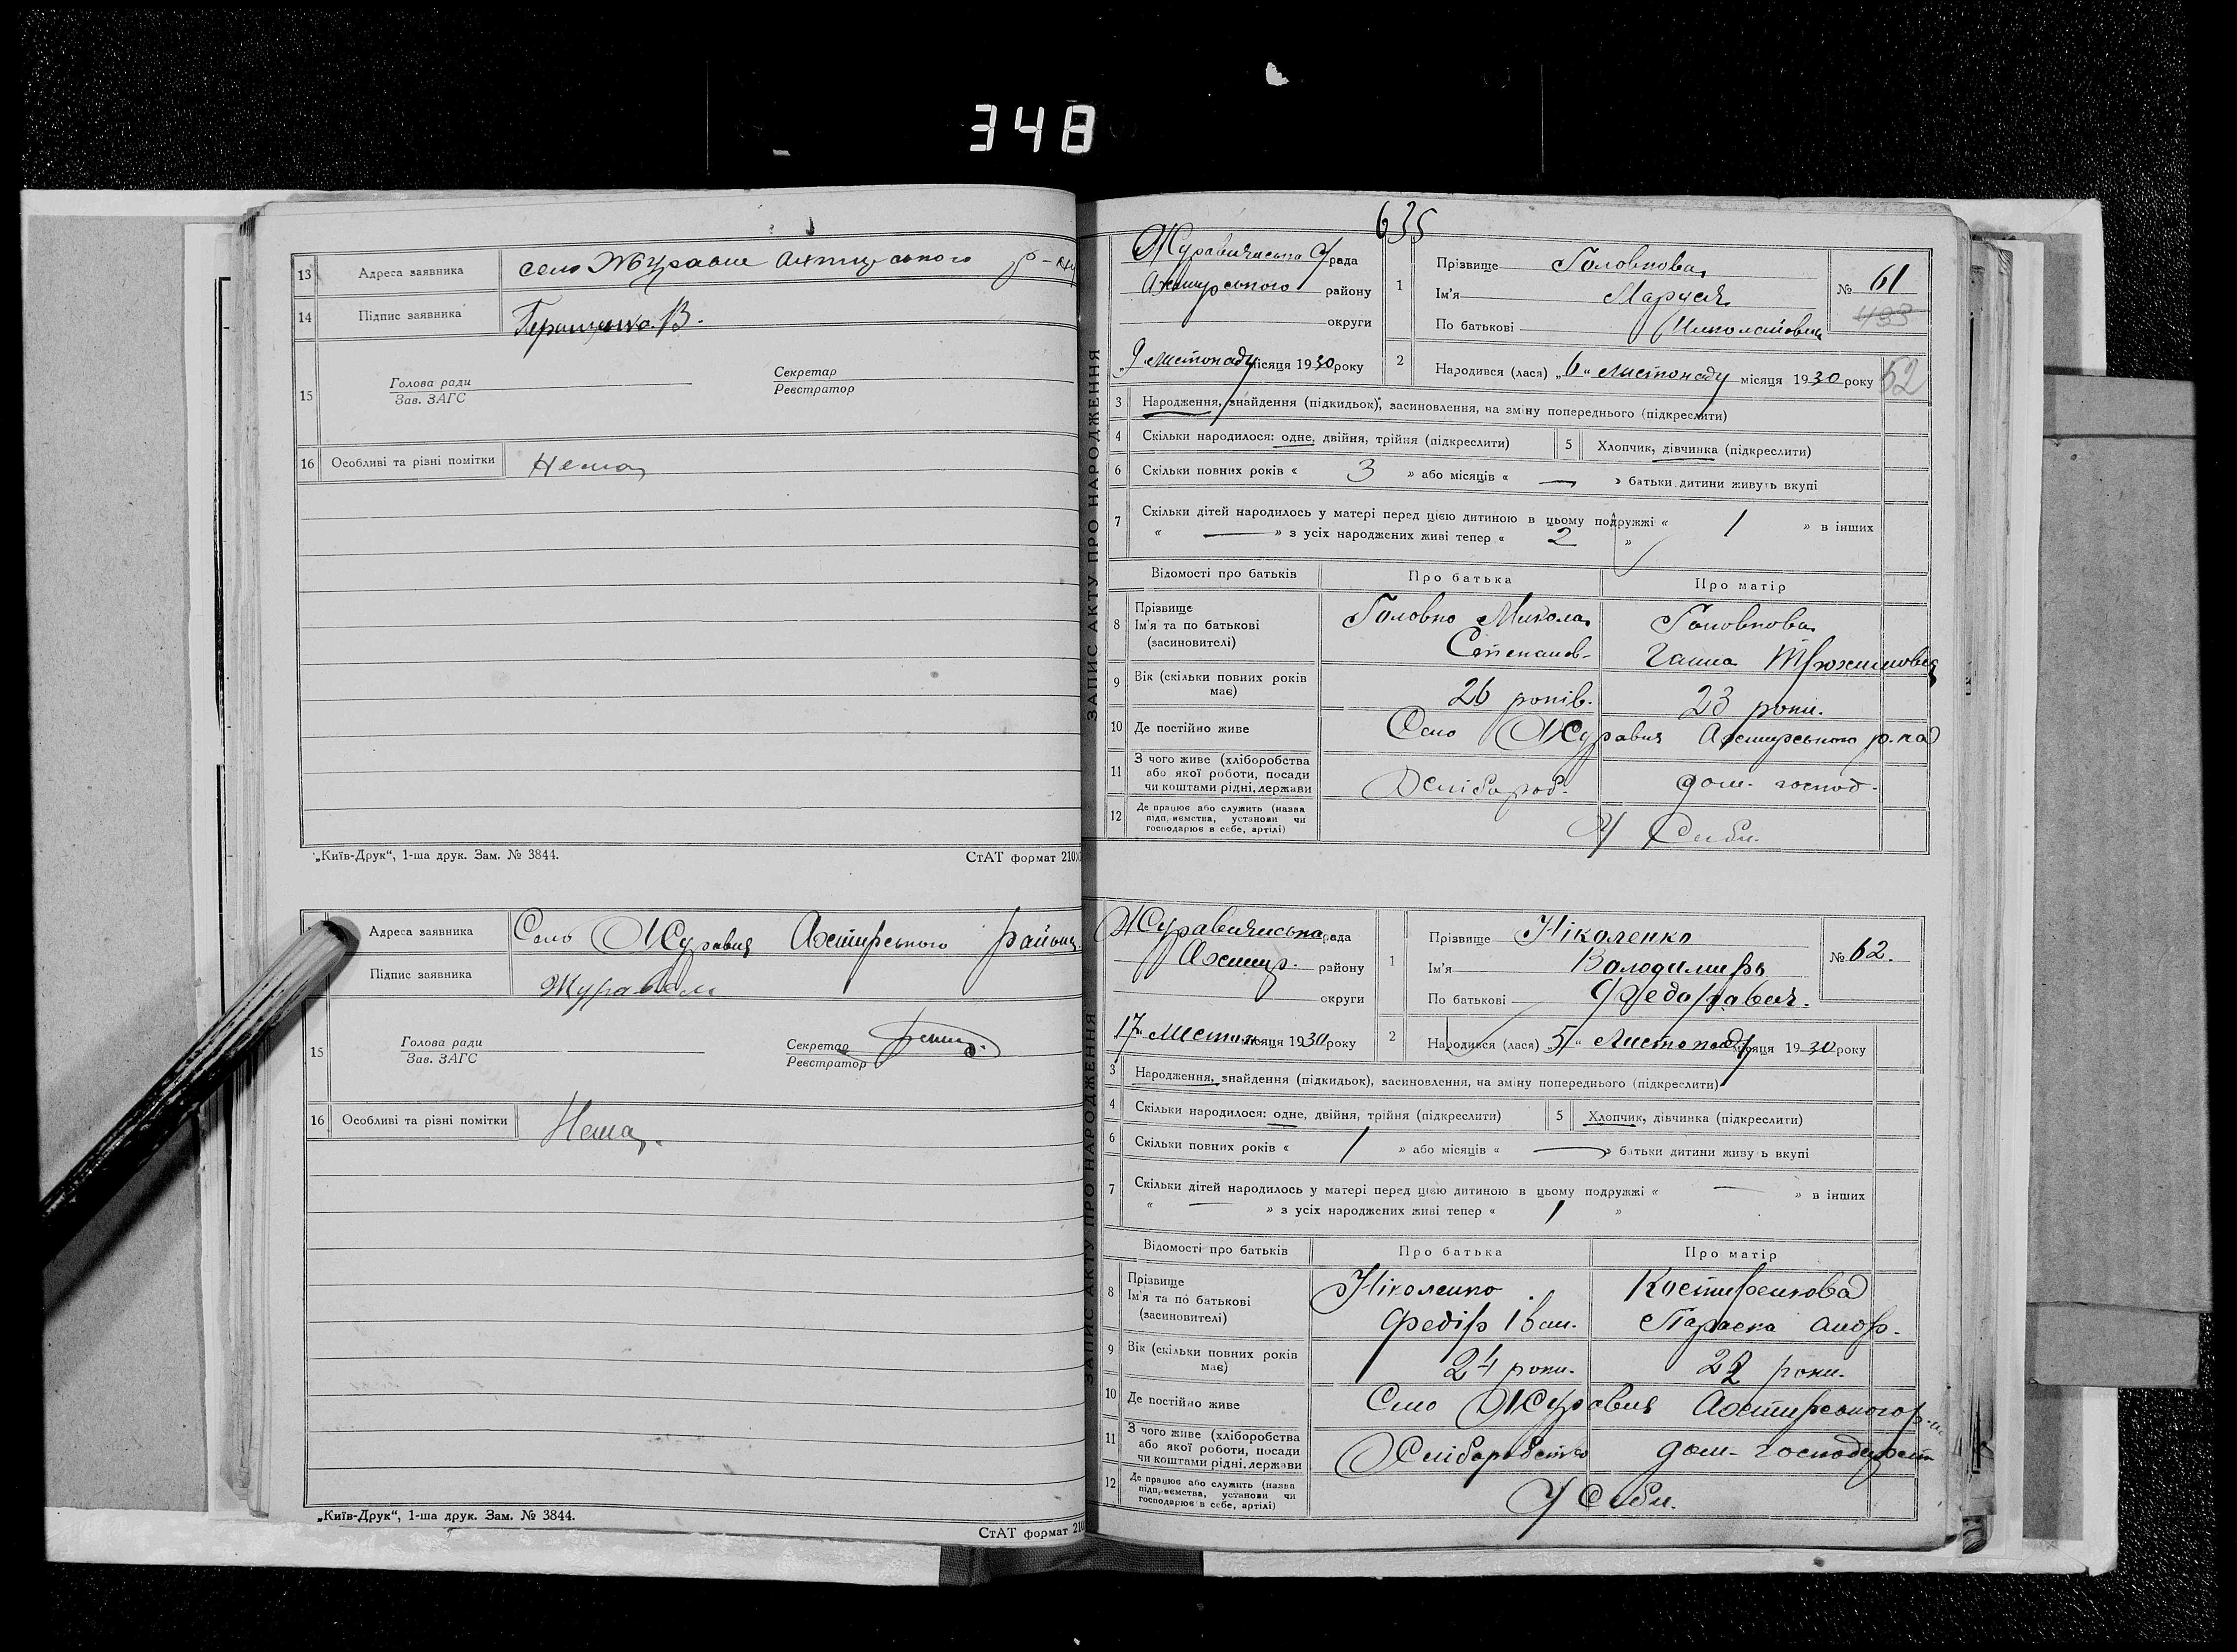 348
13 Адреса заявника село Журавне
14 Підпис заявника
15 Голова ради Секретар
Зав. ЗАГС Реєстратор
16 Особливі та різні помітки Нема
„Київ-Друк“, 1-ша друк. Зам. № 3844. СтАТ формат 210
Адреса заявника Село Журавня Охтирського району
Підпис заявника
15 Голова ради Секретар
Зав. ЗАГС Реєстратор
16 Особливі та різні помітки Нема.
„Київ-Друк“, 1-ша друк. Зам. № 3844.
СтАТ формат 210
635
ЗАПИС АКТУ ПРО НАРОДЖЕННЯ
рада
району
округи
9 листопаду місяця 1930 року
1 Прізвище Головкова
Ім'я Маруся
По батькові Миколайовна
№ 61
433
2 Народився (лася) „6“ листопаду місяця 1930 року
52
3 Народження, знайдення (підкидьок), засиновлення, на зміну попереднього (підкреслити)
4 Скільки народилося: одне, двійня, трійня (підкреслити) 5 Хлопчик, дівчинка (підкреслити)
6 Скільки повних років « 3 » або місяців « — » батьки дитини живуть вкупі
7 Скільки дітей народилось у матері перед цією дитиною в цьому подружжі « 1 » в інших
« — » з усіх народжених живі тепер « 2 »
Відомості про батьків Про батька Про матір
8 Прізвище
Ім'я та по батькові
(засиновителі)
Головко Микола
Степанов-
Головкова
Ганна
9 Вік (скільки повних років має) 26 років. 23 роки.
10 Де постійно живе Село Журавня Охтирського р-на
11 З чого живе (хліборобства
або якої роботи, посади
чи коштами рідні, держави
Хлібороб. дом. господ.
12 Де працює або служить (назва
підприємства, установи чи
господарює в себе, артілі)
У себи.
ЗАПИС АКТУ ПРО НАРОДЖЕННЯ
рада
Охтир. району
округи
17 листоп. місяця 1930 року
1 Прізвище Ніколенко
Ім'я Володимиръ
По батькові Федорович.
№ 62.
2 Народився (лася) „5“ листопаду місяця 1930 року
3 Народження, знайдення (підкидьок), засиновлення, на зміну попереднього (підкреслити)
4 Скільки народилося: одне, двійня, трійня (підкреслити) 5 Хлопчик, дівчинка (підкреслити)
6 Скільки повних років « 1 » або місяців « — » батьки дитини живуть вкупі
7 Скільки дітей народилось у матері перед цією дитиною в цьому подружжі « — » в інших
« — » з усіх народжених живі тепер « 1 »
Відомості про батьків Про батька Про матір
8 Прізвище
Ім'я та по батькові
(засиновителі)
Ніколенко
Федір Іван.
Костиренкова
Параска Андр.
9 Вік (скільки повних років має) 24 роки. 22 роки.
10 Де постійно живе Село Журавня Охтирського р-н
11 З чого живе (хліборобства
або якої роботи, посади
чи коштами рідні, держави
Хліборобство дом. господарст
12 Де працює або служить (назва
підприємства, установи чи
господарює в себе, артілі)
У себи.